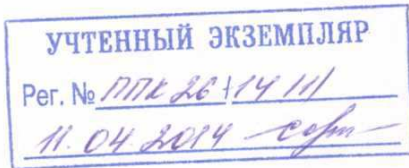 УЧТЕННЫЙ ЭКЗЕМПЛЯР
Рег. № ППК 26/14
11.04.2014